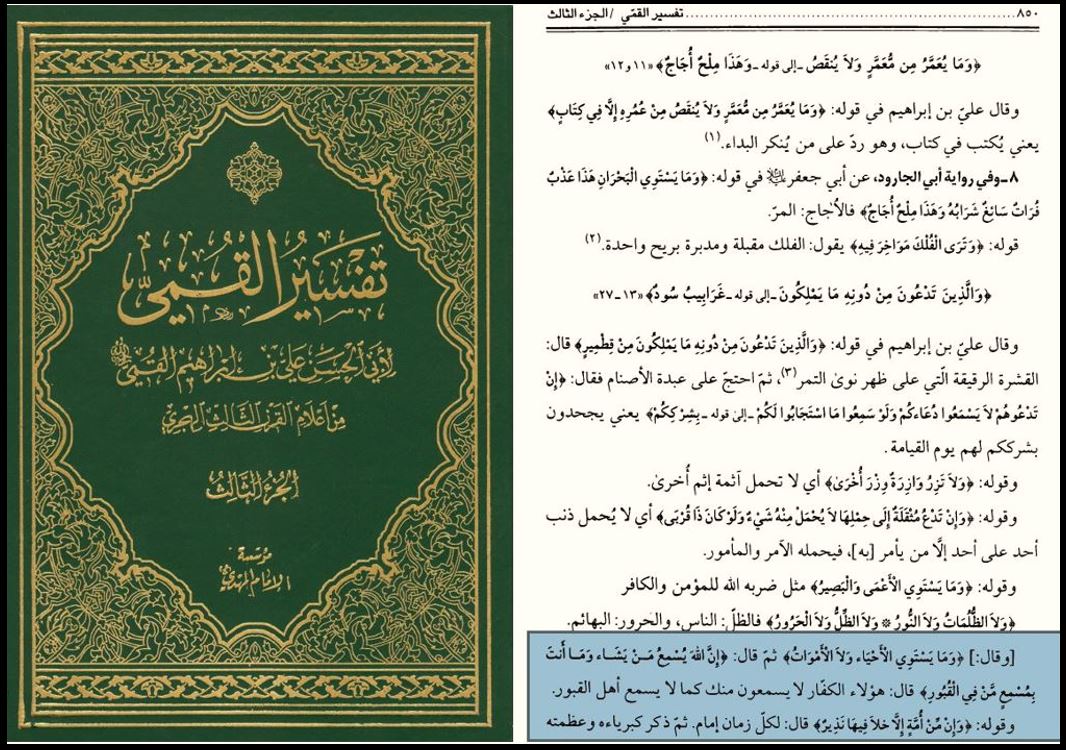 تفسير القمي
لأبي الحسن علي بن إبراهيم القمي
من أعلام القرن الثالث الهجري
الجزء الثالث
مؤسسة
الإمام المهدي
٨٥٠ .......... تفسير القمّي / الجزء الثالث
﴿وَمَا يُعَمَّرُ مِن مُّعَمَّرٍ وَلاَ يُنقَصُ ـ إلى قوله ـ وَهَذَا مِلْحٌ أُجَاجٌ﴾ «١١ و١٢»
وقال عليّ بن إبراهيم في قوله: ﴿وَمَا يُعَمَّرُ مِن مُّعَمَّرٍ وَلاَ يُنقَصُ مِنْ عُمُرِهِ إِلَّا فِي كِتَابٍ﴾
يعني يُكتب في كتاب، وهو ردّ على من يُنكر البداء.(١)
٨ ـ وفي رواية أبي الجارود، عن أبي جعفر في قوله: ﴿وَمَا يَسْتَوِي الْبَحْرَانِ هَذَا عَذْبٌ
فُرَاتٌ سَائِغٌ شَرَابُهُ وَهَذَا مِلْحٌ أُجَاجٌ﴾ فالأجاج: المرّ.
قوله: ﴿وَتَرَى الْفُلْكَ مَوَاخِرَ فِيهِ﴾ يقول: الفلك مقبلة ومدبرة بريح واحدة.(٢)
﴿وَالَّذِينَ تَدْعُونَ مِنْ دُونِهِ مَا يَمْلِكُونَ ـ إلى قوله ـ غَرَابِيبُ سُودٌ﴾ «١٣ـ٢٧»
وقال عليّ بن إبراهيم في قوله: ﴿وَالَّذِينَ تَدْعُونَ مِنْ دُونِهِ مَا يَمْلِكُونَ مِنْ قِطْمِيرٍ﴾ قال:
القشرة الرقيقة الّتي على ظهر نوىٰ التمر(٣)، ثمّ احتجّ على عبدة الأصنام فقال: ﴿إِنْ
تَدْعُوهُمْ لاَ يَسْمَعُوا دُعَاءَكُمْ وَلَوْ سَمِعُوا مَا اسْتَجَابُوا لَكُمْ ـ إلى قوله ـ بِشِرْكِكُمْ﴾ يعني يجحدون
بشرككم لهم يوم القيامة.
وقوله: ﴿وَلاَ تَزِرُ وَازِرَةٌ وِزْرَ أُخْرَىٰ﴾ أي لا تحمل آثمة إثم أُخرىٰ.
وقوله: ﴿وَإِنْ تَدْعُ مُثْقَلَةٌ إِلَى حِمْلِهَا لاَ يُحْمَلْ مِنْهُ شَيْءٌ وَلَوْ كَانَ ذَا قُرْبَى﴾ أي لا يُحمل ذنب
أحد على أحد إلّا من يأمر [به]، فيحمله الآمر والمأمور.
وقوله: ﴿وَمَا يَسْتَوِي الْأَعْمَى وَالْبَصِيرُ﴾ مثل ضربه الله للمؤمن والكافر
﴿وَلاَ الظُّلُمَاتُ وَلاَ النُّورُ * وَلاَ الظِّلُّ وَلاَ الْحَرُورُ﴾ فالظلّ: الناس، والحرور: البهائم.
[وقال:] ﴿وَمَا يَسْتَوِي الْأَحْيَاء وَلاَ الْأَمْوَاتُ﴾ ثمّ قال: ﴿إِنَّ اللهَ يُسْمِعُ مَنْ يَشَاء وَمَا أَنتَ
بِمُسْمِعٍ مَّنْ فِي الْقُبُورِ﴾ قال: هؤلاء الكفّار لا يسمعون منك كما لا يسمع أهل القبور.
وقوله: ﴿وَإِنْ مِّنْ أُمَّةٍ إِلَّا خلاَ فِيهَا نَذِيرٌ﴾ قال: لكلّ زمان إمام. ثمّ ذكر كبرياءه وعظمته